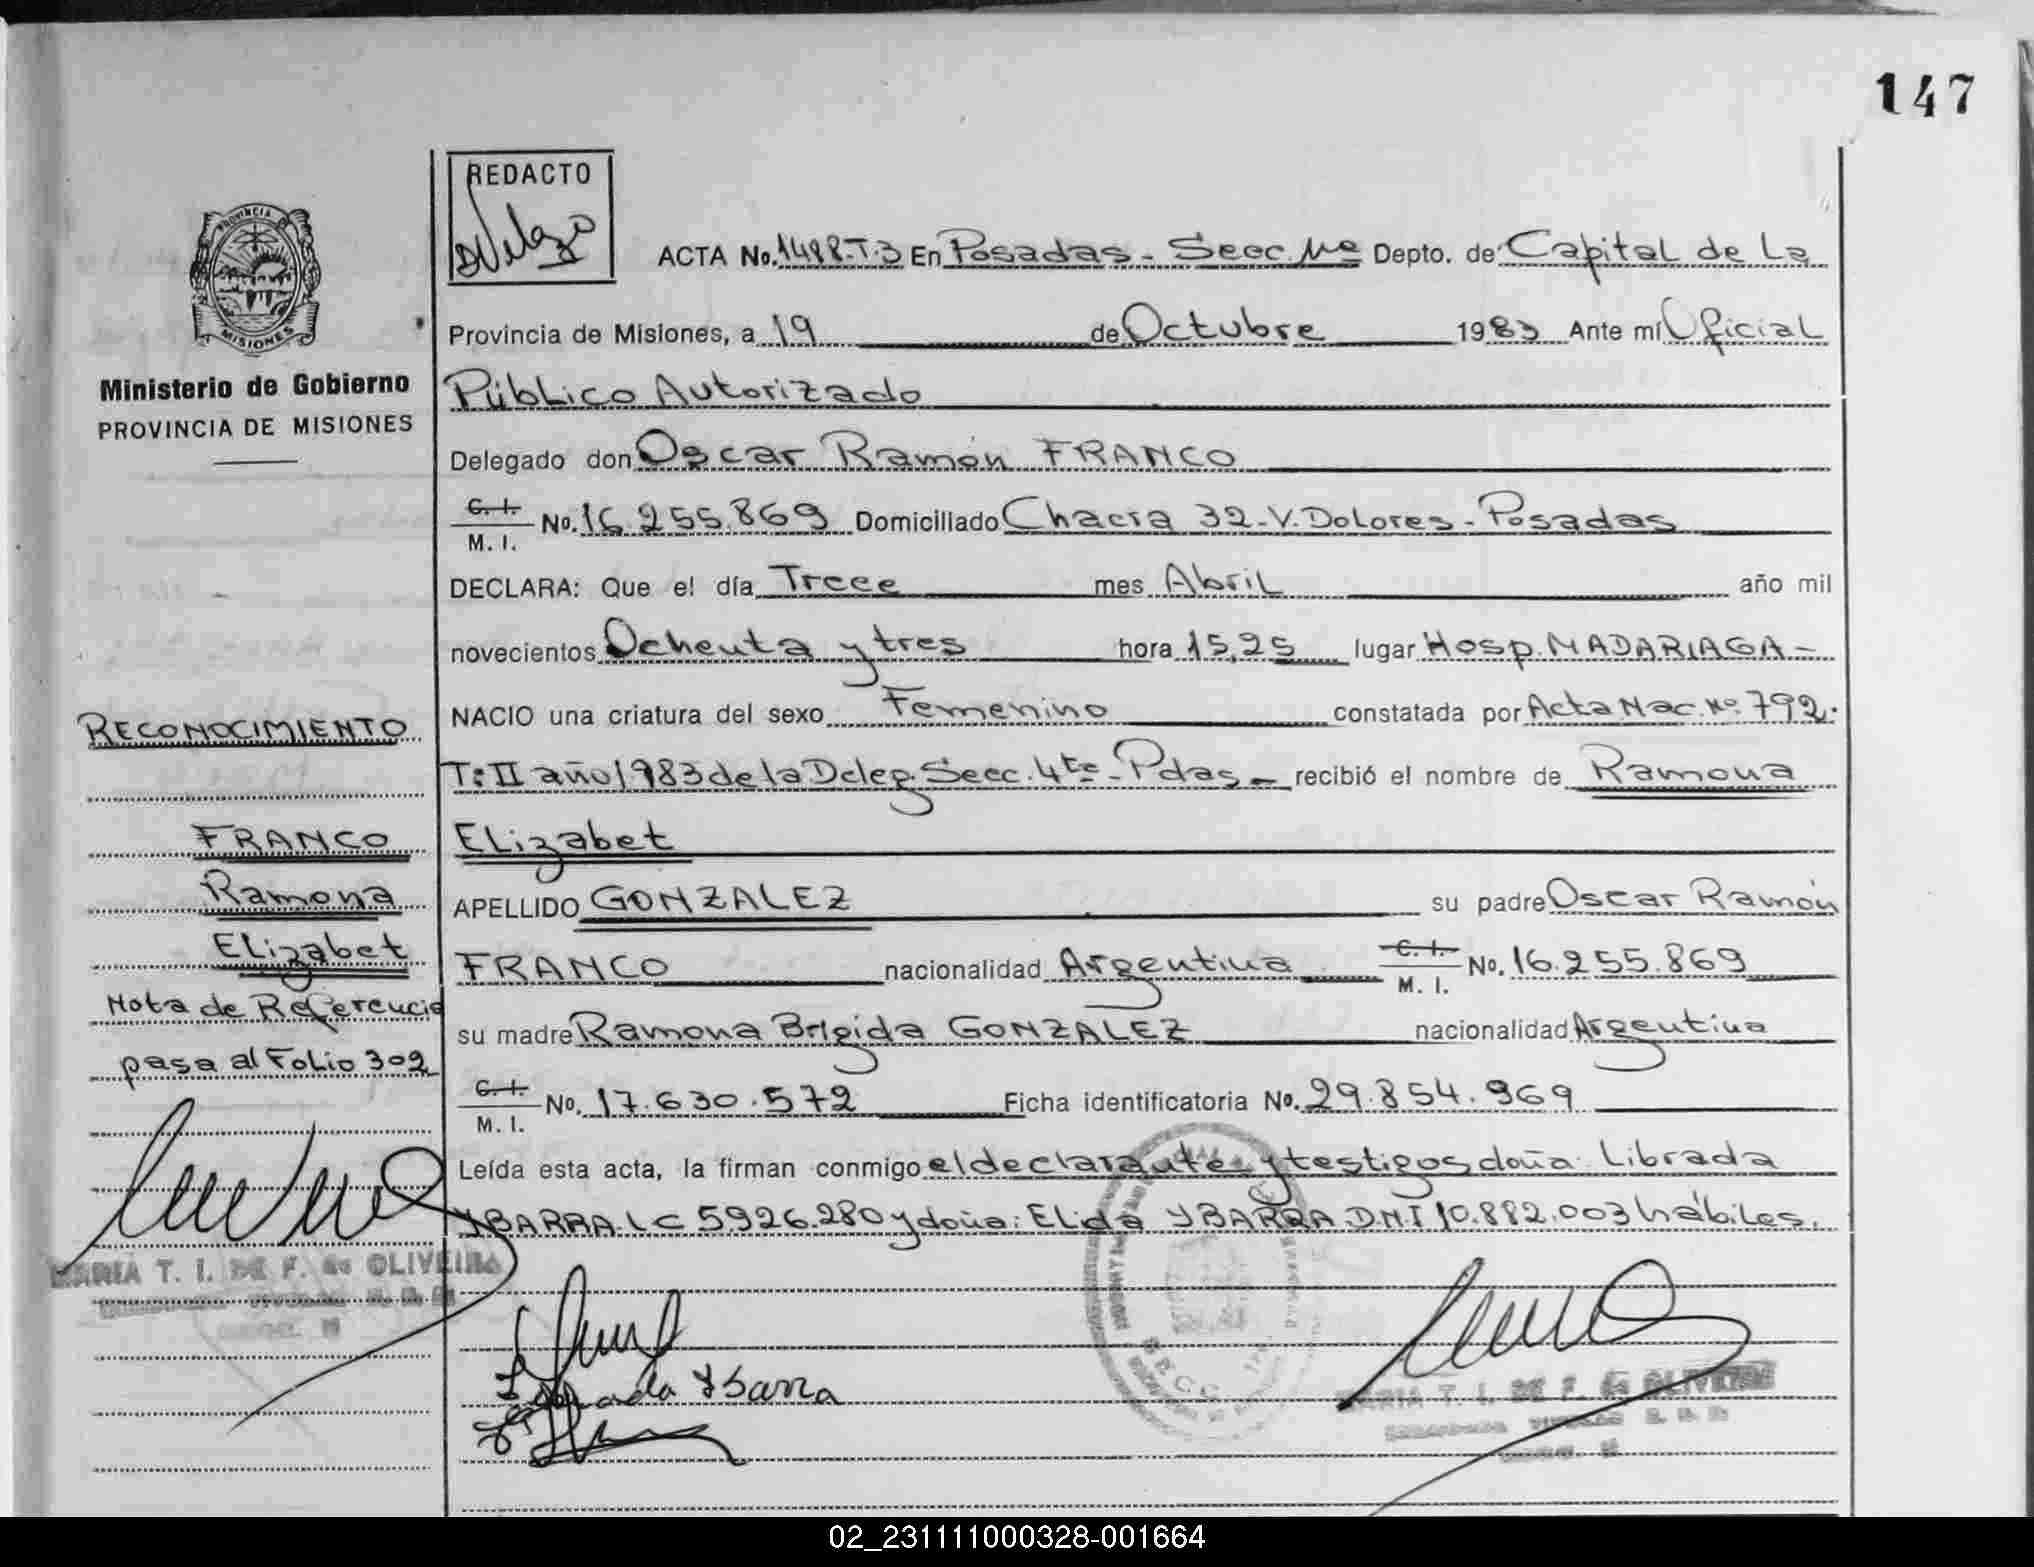 147
PROVINCIA DE
MISIONES
Ministerio de Gobierno
PROVINCIA DE MISIONES
RECONOCIMIENTO
FRANCO
Ramona
Elizabet
Nota de Referencia
pasa al Folio 302
MARIA T. I. DE F. de OLIVEIRA
REDACTO
ACTA No. 1488-T.3 En Posadas - Secc. Depto. de Capital de La
Provincia de Misiones, a 19 de Octubre 1983 Ante mí Oficial
Público Autorizado
Delegado don Oscar Ramón FRANCO
C. I. M. I. No. 16.255.869 Domiciliado Chacra 32-V. Dolores - Posadas
DECLARA: Que el día Trece mes Abril año mil
novecientos Ochenta y tres hora 15,25 lugar Hosp. MADARIAGA -
NACIO una criatura del sexo Femenino constatada por Acta Nac. Nº 792.
T: II año 1983 de la Deleg. Secc. 4ta - Pdas - recibió el nombre de Ramona
Elizabet
APELLIDO GONZALEZ su padre Oscar Ramón
FRANCO nacionalidad Argentina C. I. M. I. No. 16.255.869
su madre Ramona Brigida GONZALEZ nacionalidad Argentina
C. I. M. I. No. 17.630.572 Ficha identificatoria No. 29.854.969
Leída esta acta, la firman conmigo el declarante y testigos doña: Librada
YBARRA. LC 5.926.280 y doña: Elida YBARRA D.N.I 10.882.003 hábiles.
Ybarra
MARIA T. I. DE F. de OLIVEIRA
02_231111000328-001664